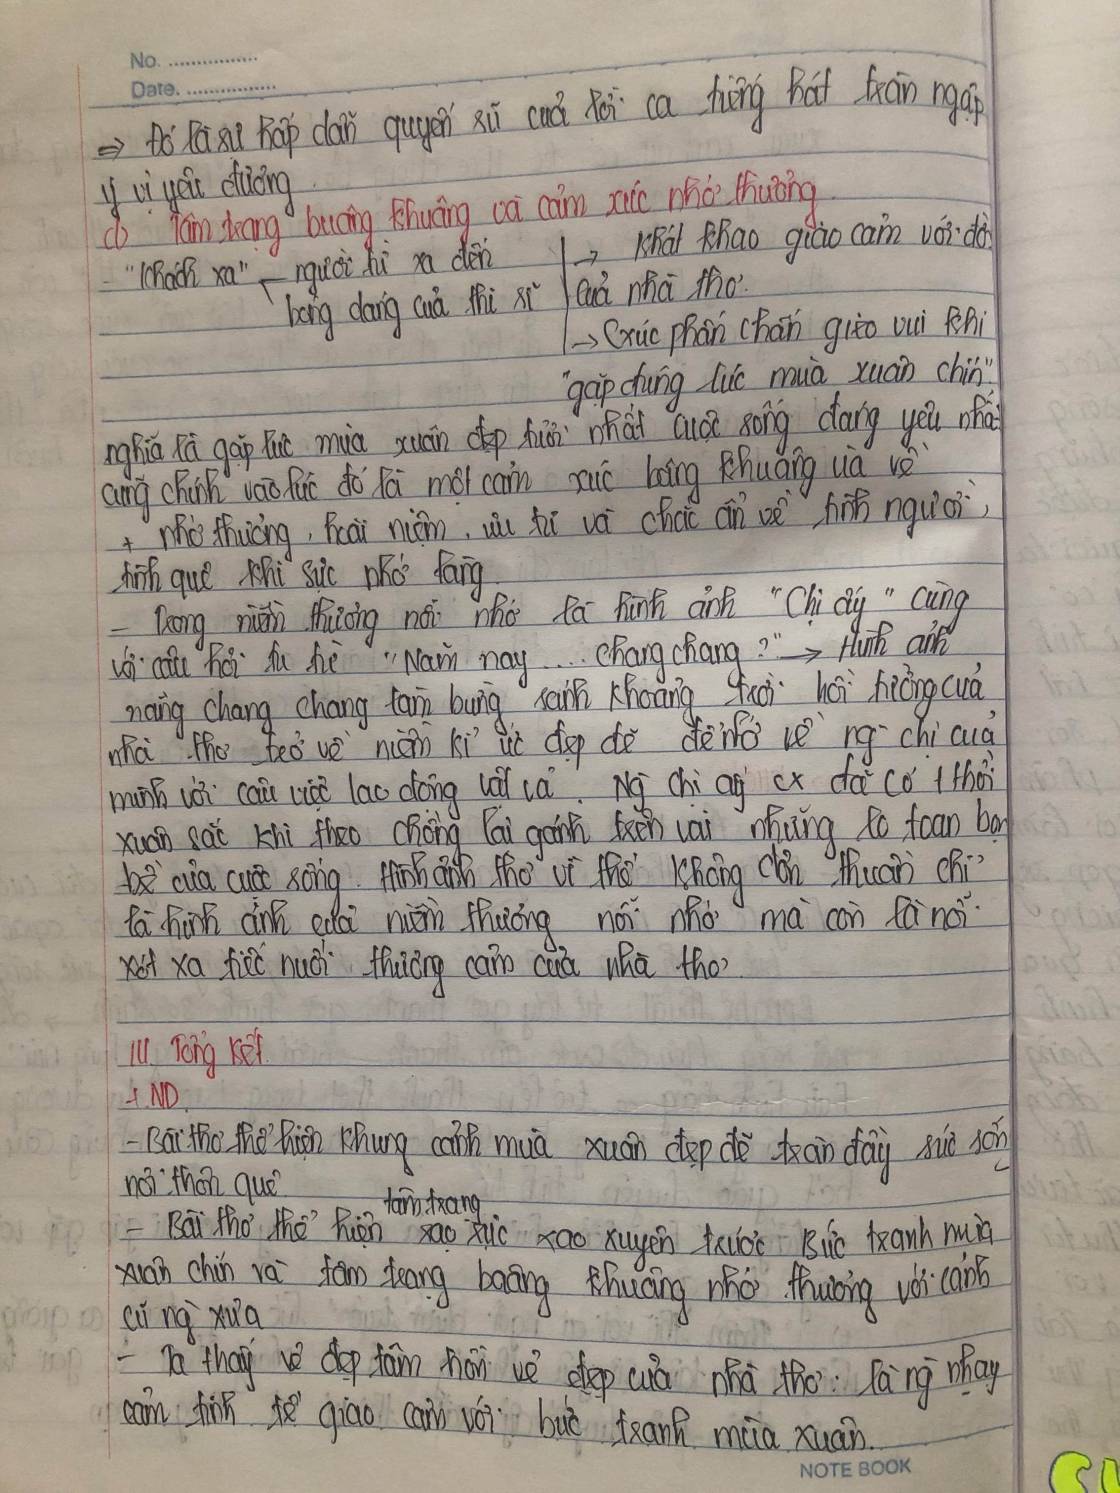 No. ................
Date. ................
=> Đó là sự hấp dẫn quyến rũ của lời ca tiếng hát tràn ngập
ý vị yêu đương
d) Tâm trạng buâng khuâng và cảm xúc nhớ thương
- "Khách xa" - người từ xa đến | → khát khao giao cảm với đời
bóng dáng của thi sĩ | của nhà thơ.
| → xúc phấn chấn giào vui khi
"gặp đúng lúc mùa xuân chín"
nghĩa là gặp lúc mùa xuân đẹp tươi nhất cuộc sống đáng yêu nhất
cũng chính vào lúc đó là một cảm xúc bâng khuâng ùa về
+ nhớ thương, hoài niệm, ưu tư và chắc ẩn về tình người,
tình quê khi sực nhớ làng
- Trong niềm thương nỗi nhớ là hình ảnh "Chị ấy" cùng
với câu hỏi tu từ "Năm nay .... chang chang?" → Hình ảnh
nắng chang chang làm bừng sánh khoảng trời hồi tưởng của
nhà thơ trở về niềm kí ức đẹp đẽ để nhớ về ng chị của
mình với câu việc lao động vất vả. Ng chị ấy cx đã có 1 thời
xuân sắc khi theo chồng lại gánh trên vai những lo toan bộn
bề của cuộc sống. Hình ảnh thơ vì thế không đơn thuần chỉ
là hình ảnh của niềm thương nỗi nhớ mà còn là nỗi
xót xa tiếc nuối thương cảm của nhà thơ
III. Tổng kết
1. ND
- Bài thơ thể hiện khung cảnh mùa xuân đẹp đẽ tràn đầy sức sống
nơi thôn quê
tâm trạng
- Bài thơ thể hiện xao xúc xao xuyến trước Bức tranh mùa
xuân chín và tâm trạng bâng khuâng nhớ thương với cảnh
cũ ng xưa
- Ta thấy vẻ đẹp tâm hồn vẻ đẹp của nhà thơ: là ng nhạy
cảm tinh tế giao cảm với bức tranh mùa xuân.
NOTE BOOK